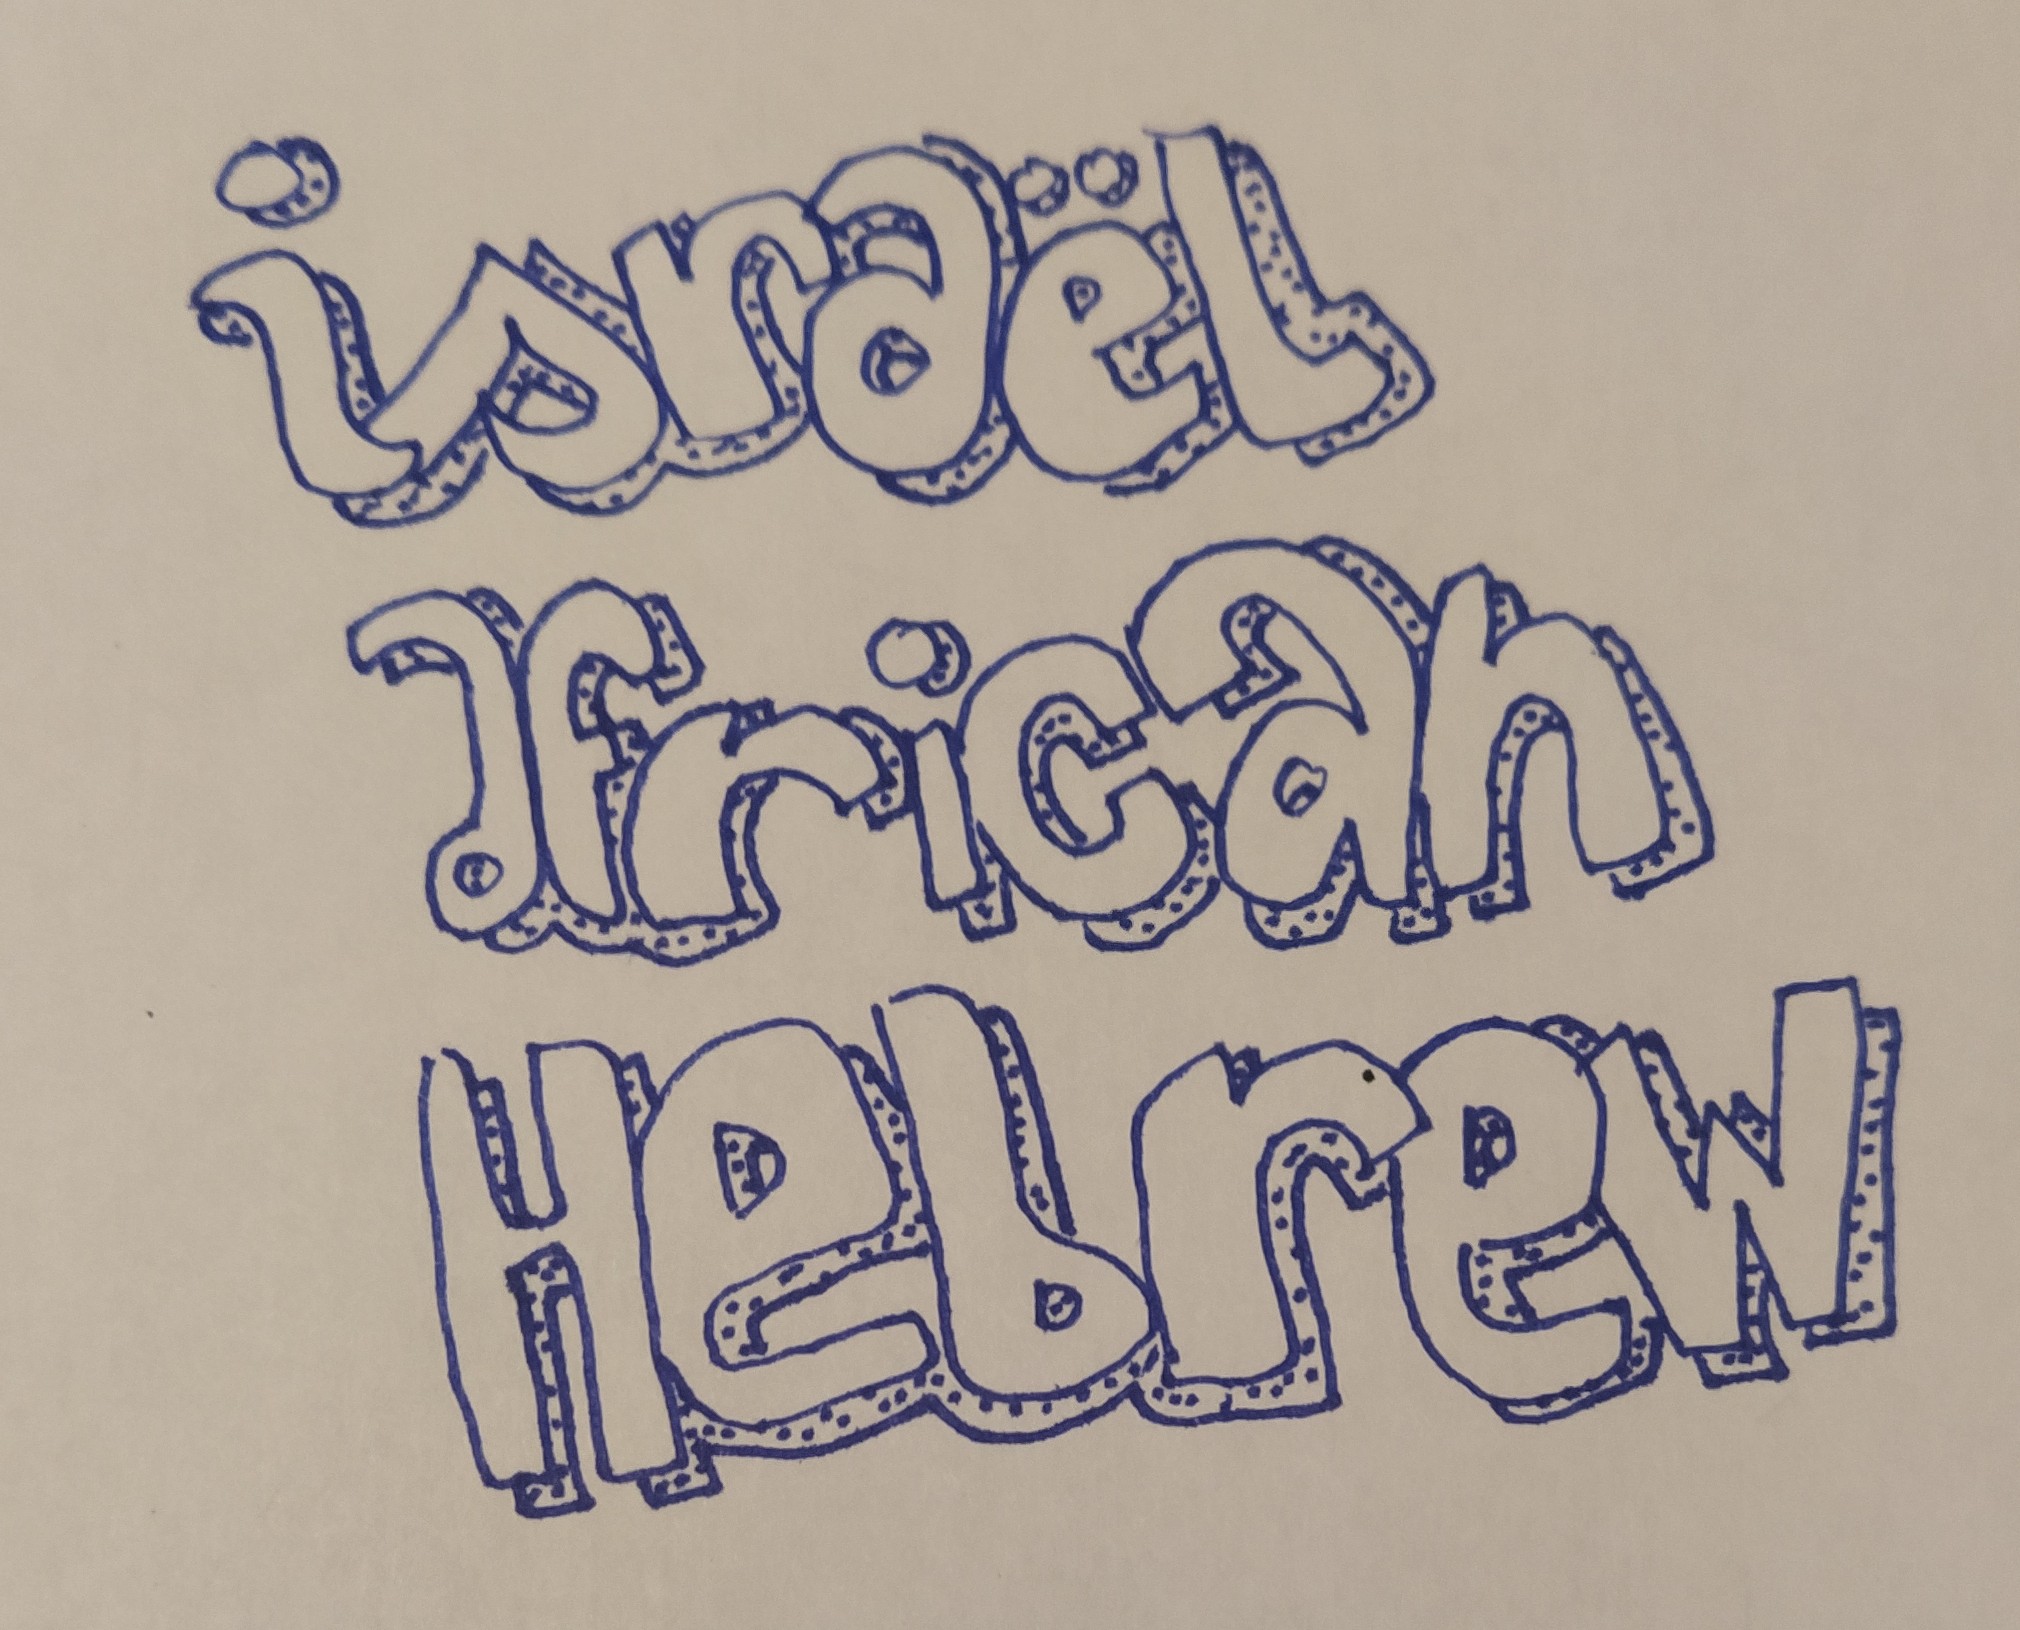 israël
african
Hebrew